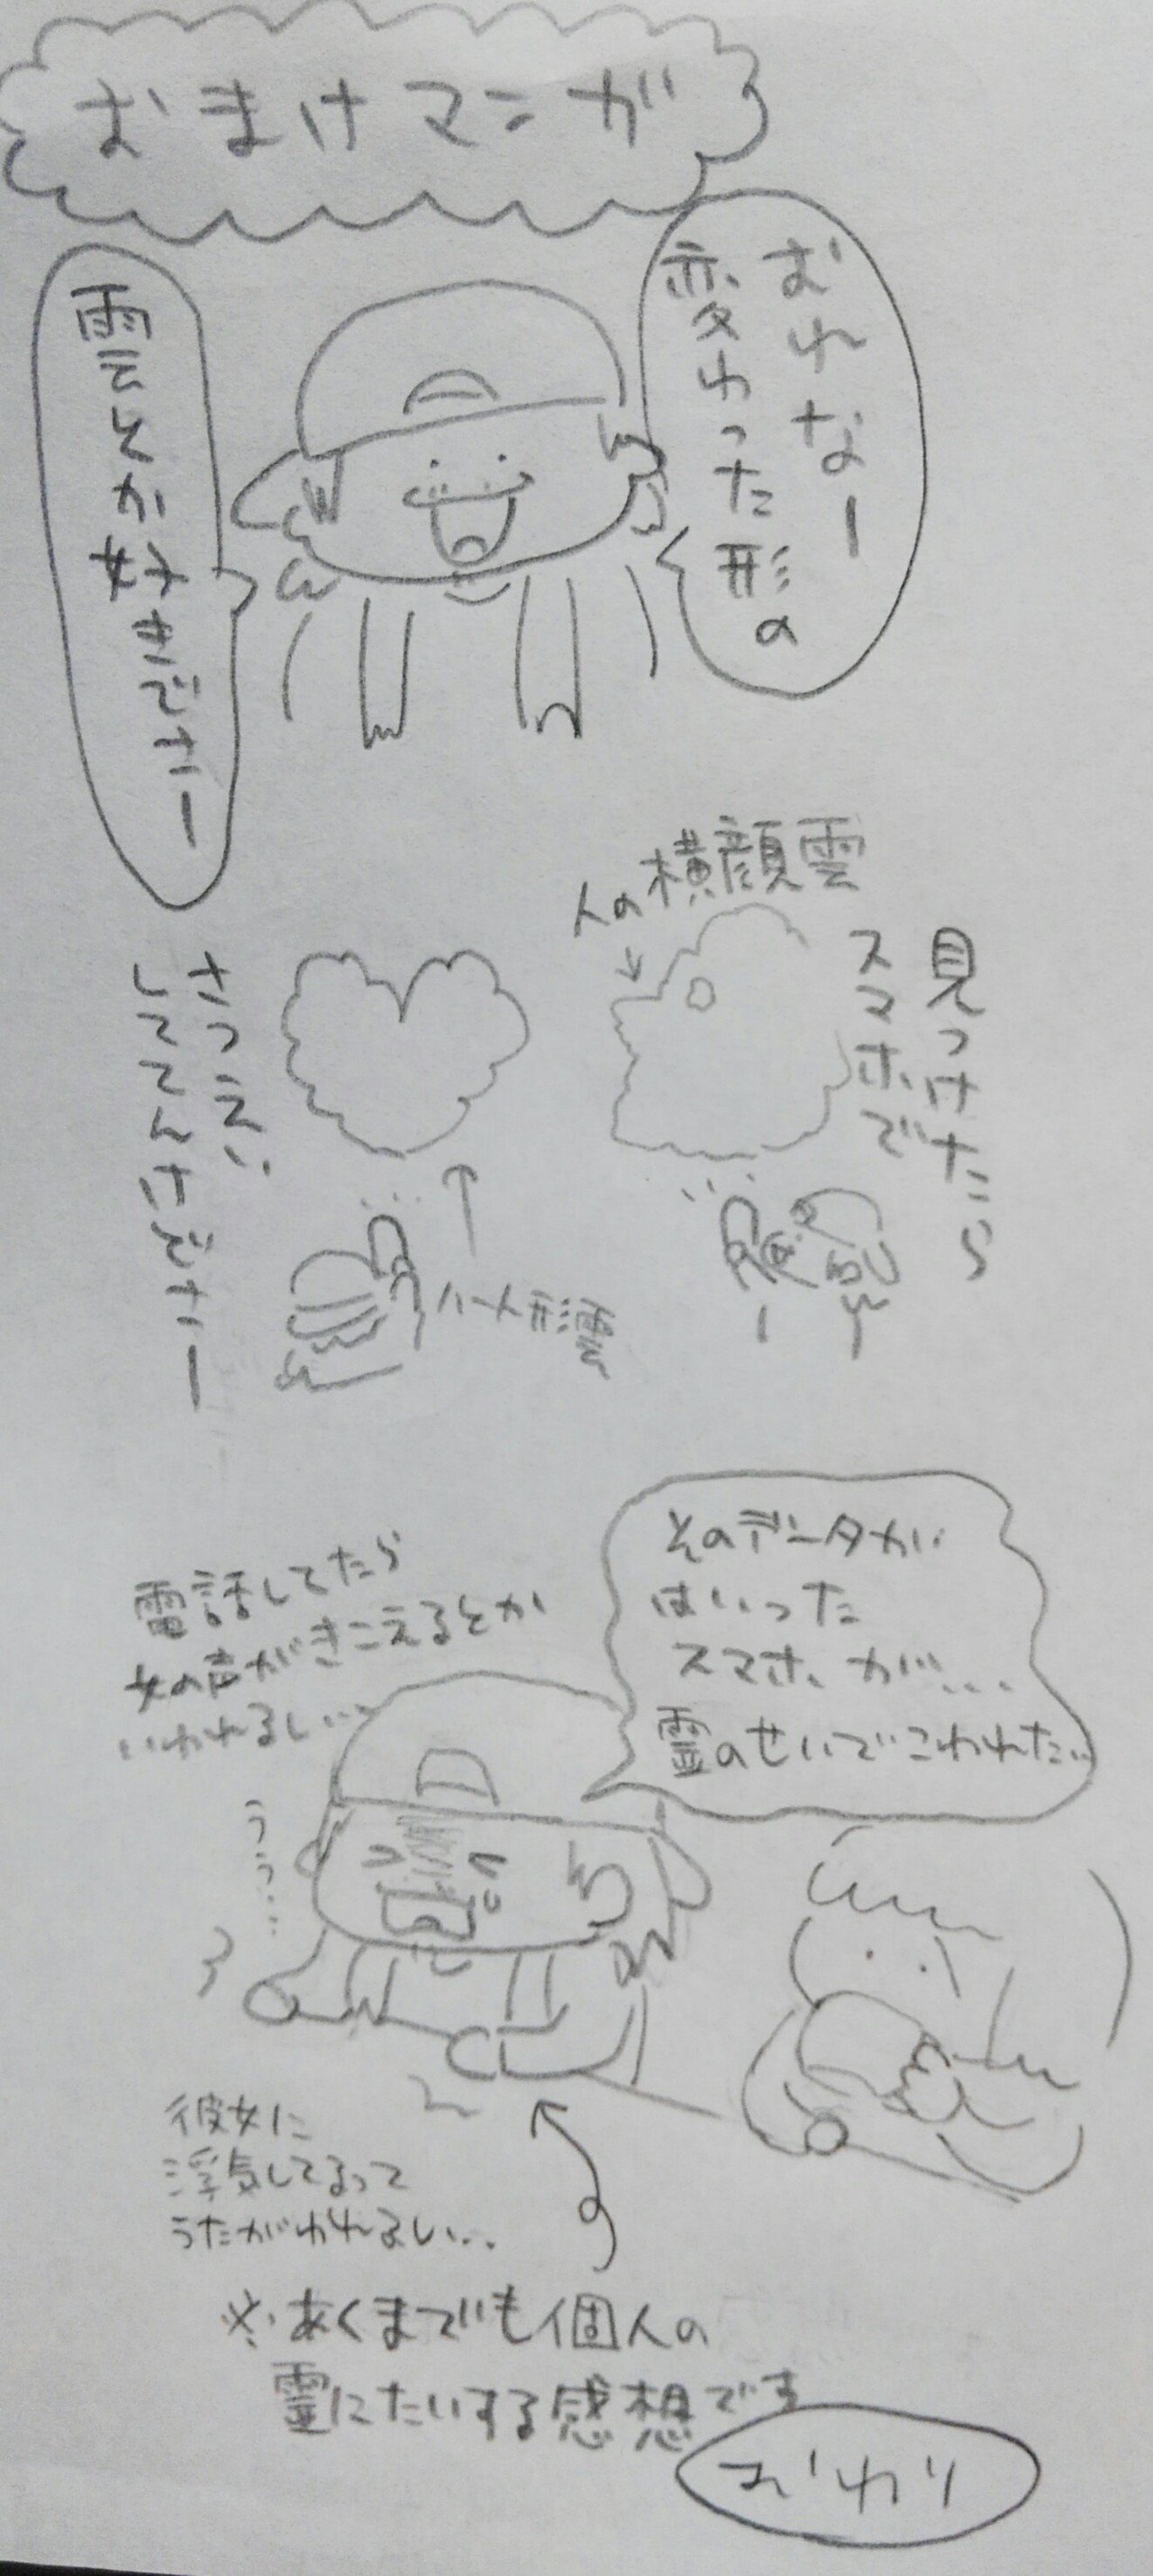 おまけマンガ
おれなー
変わった形の
雲とか好きでさー
見つけたら
スマホで
人の横顔雲
ハート形雲
さつえい
しててんけどさー
そのデータが
はいった
スマホが...
霊のせいでこわれた...
電話してたら
女の声がきこえるとか
いわれるし...
うぅ...
彼女に
浮気してるって
うたがわれるし...
※あくまでも個人の
霊にたいする感想です
おわり